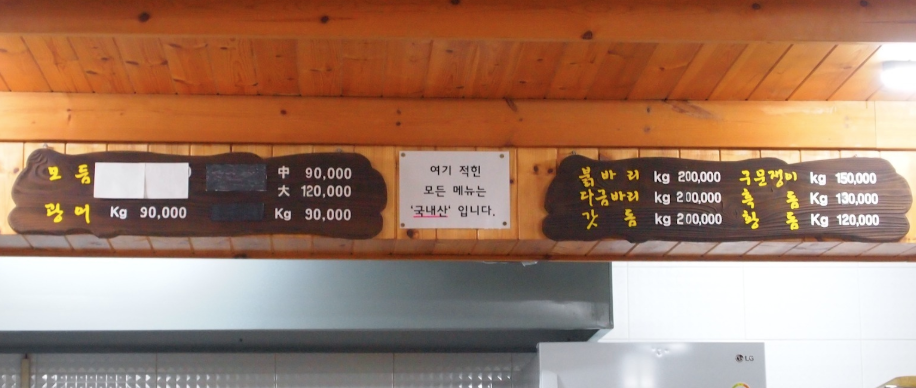 모 듬 中 90,000
大 120,000
광 어 Kg 90,000 Kg 90,000
여기 적힌
모든 메뉴는
'국내산' 입니다.
붉 바 리 kg 200,000 구문쟁이 kg 150,000
다금바리 kg 200,000 흑 돔 Kg 130,000
갓 돔 kg 200,000 황 돔 Kg 120,000
LG